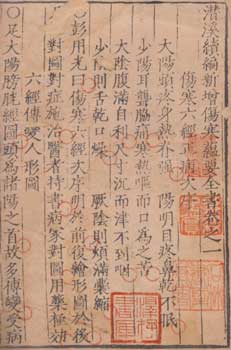 潛溪續編新增傷寒蘊要全書卷之一
傷寒六經正病大序
大陽頭疼身熱脊強　陽明目疼鼻乾不眠
少陽耳聾脇痛寒熱嘔而口為之苦
大陰腹滿自利尺寸沉而津不到咽
少陰則舌乾口燥　厥陰則煩滿囊縮
○彭用光曰傷寒六經大序明然前後繪形圖於後
對圖對症施治醫者持書病家對圖用藥極効
六經傳變人形圖
○足太陽膀胱經圖頭為諸陽之首故多傳變受病